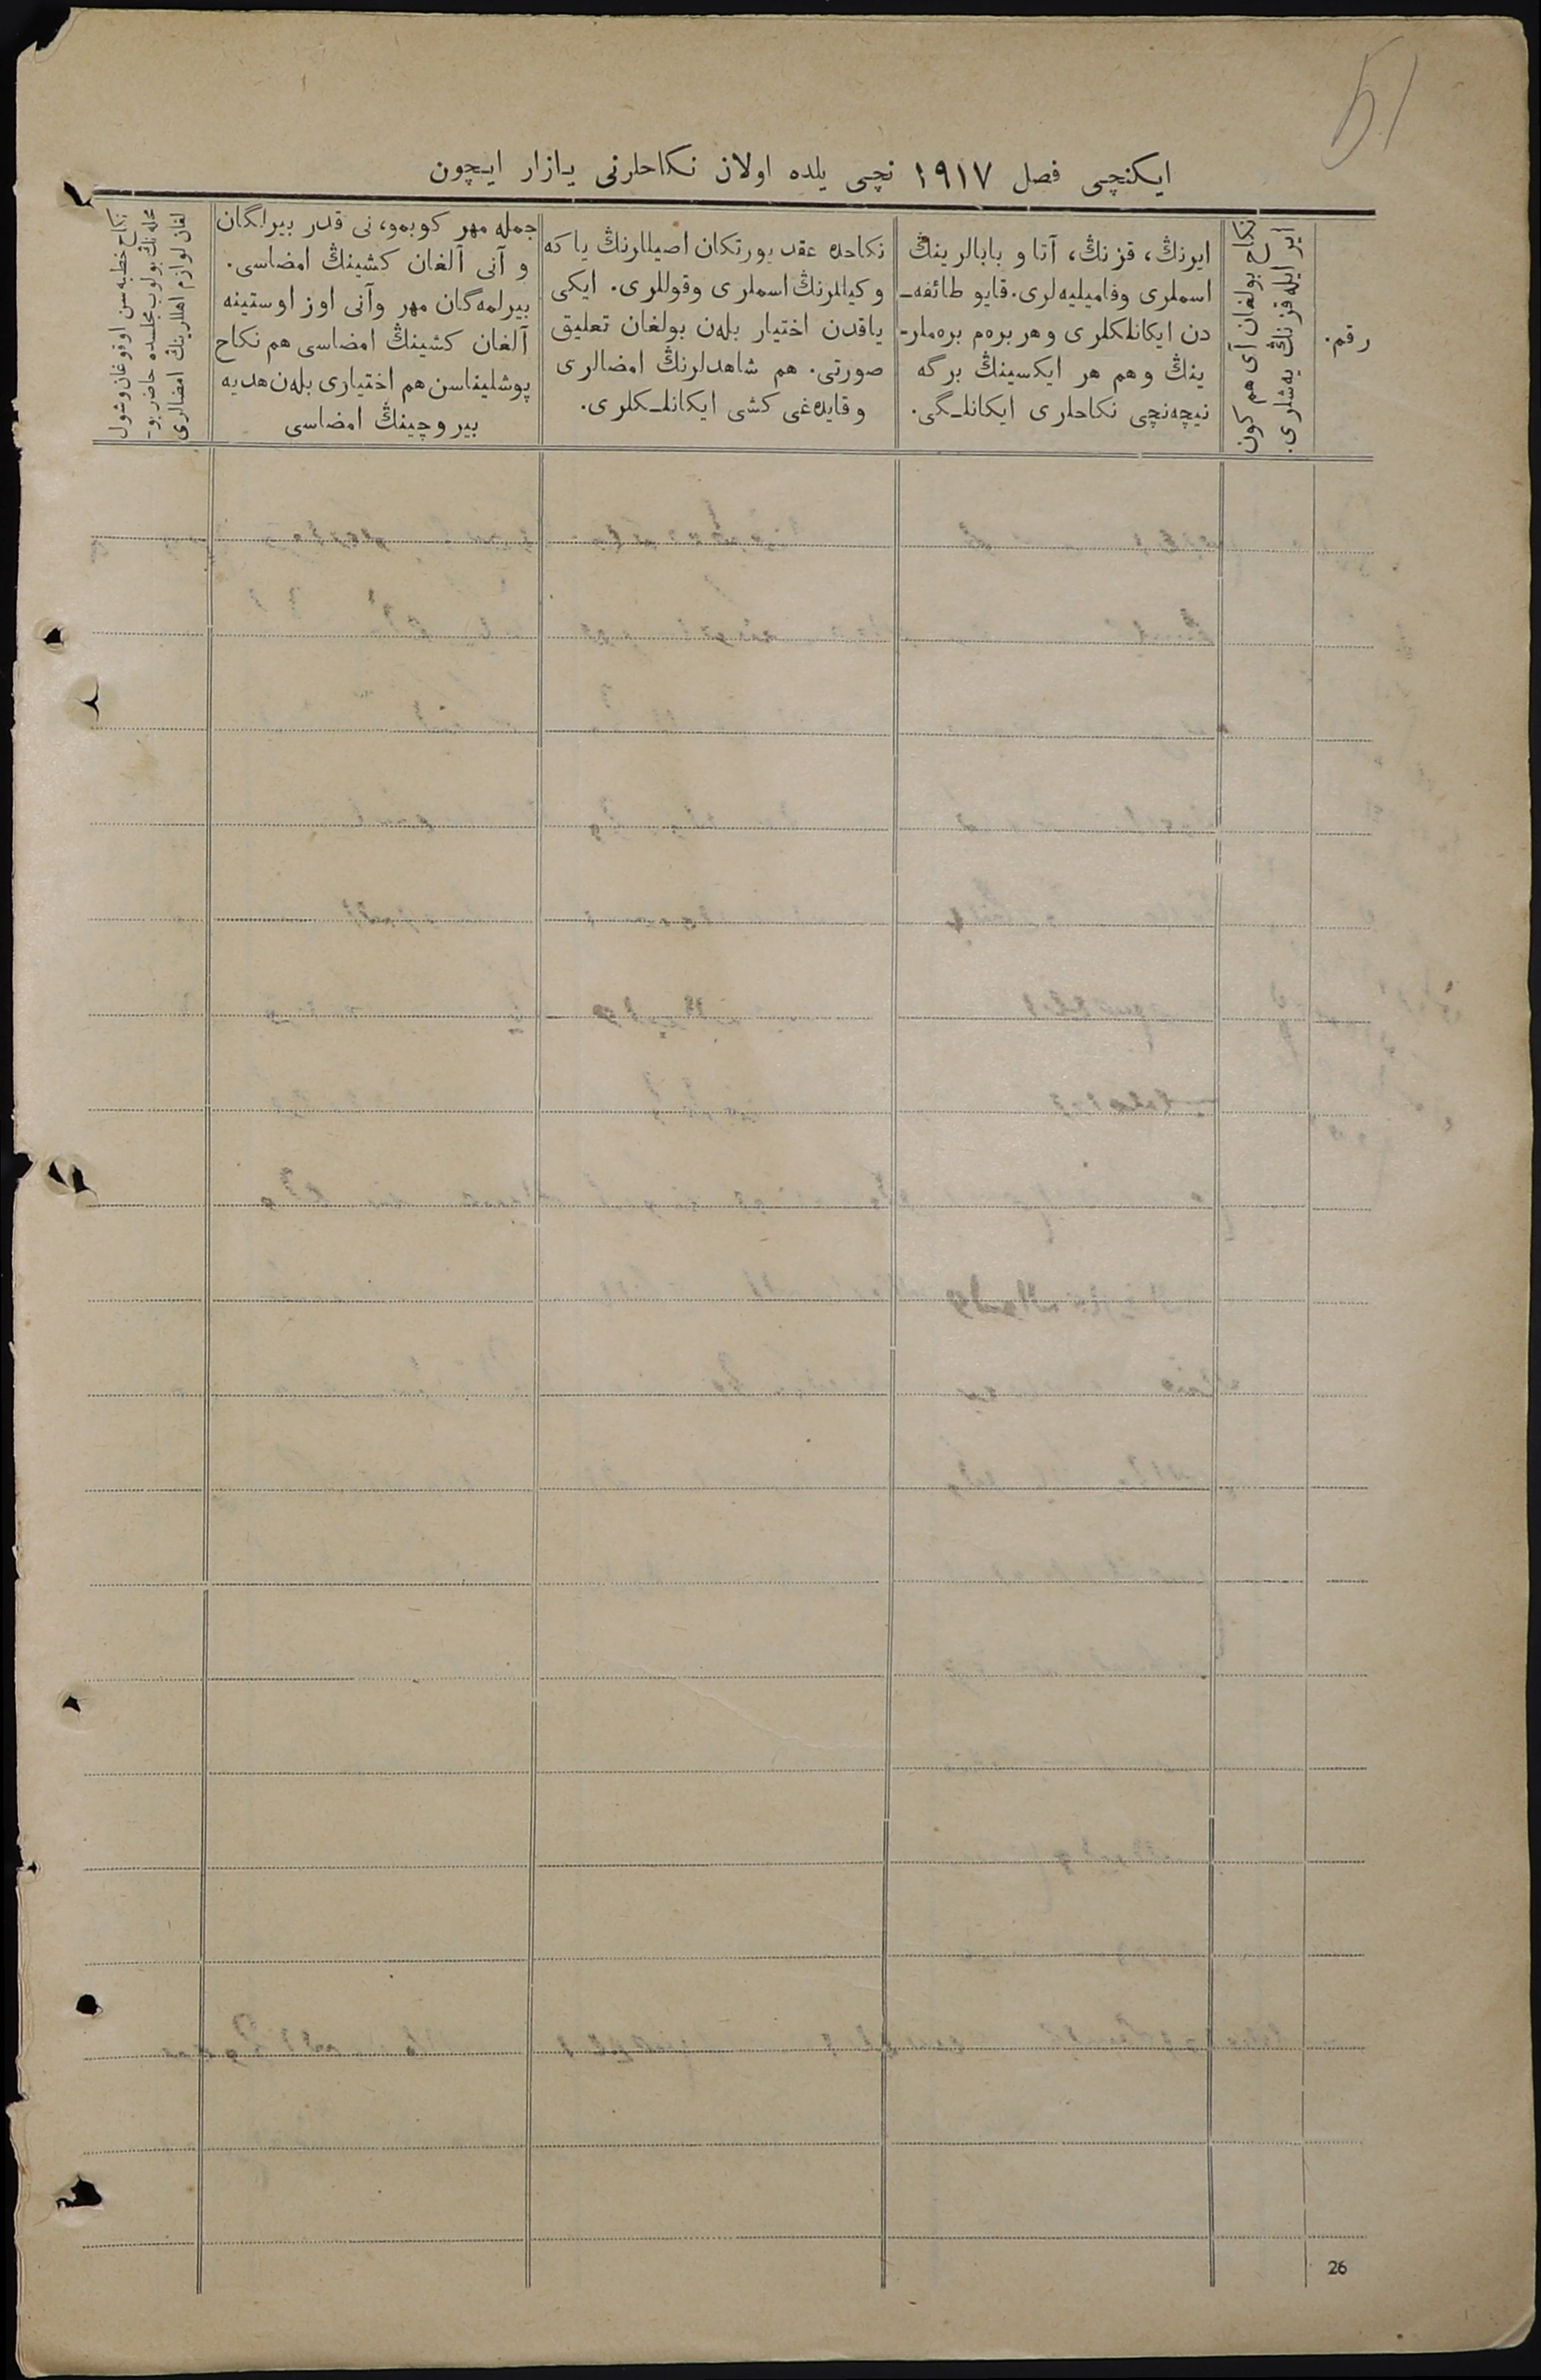 51
ایکنچی فصل ١٩١٧ نچی یلده اولان نکاحلرنی یازار ایچون
رقم.
نکاح بولغان آی هم کون
ایر ایله قزنڭ یه‌شلری.
ایرنڭ، قزنڭ، آتا و بابالرینڭ
اسملری وفامیلیه‌لری. قایو طائفه‌ـ
دن ایکانلکلری و هر بره‌م بره‌ملر-
ینڭ و هم هر ایکسینڭ برگه
نیچه‌نچی نکاحلری ایکانلـگی.
نکاحده عقد یورتکان اصیللرنڭ یا که
وکیللرنڭ اسملری وقوللری. ایکی
یاقدن اختیار بله‌ن بولغان تعلیق
صورتی. هم شاهدلرنڭ امضالری
وقایده‌غی کشی ایکانلـکلری.
جمله مهر کوبمو، نی قدر بیرلگان
و آنی آلغان کشینڭ امضاسی.
بیرلمه‌گان مهر وآنی اوز اوستینه
آلغان کشینڭ امضاسی هم نکاح
پوشلیناسن هم اختیاری بله‌ن هدیه
بیر وچینڭ امضاسی
نکاح خطبه سن اوقوغان وشول
محله نڭ بولوب مجلسده حاضر بو-
لغان لوازم اهللرینڭ امضالری
26